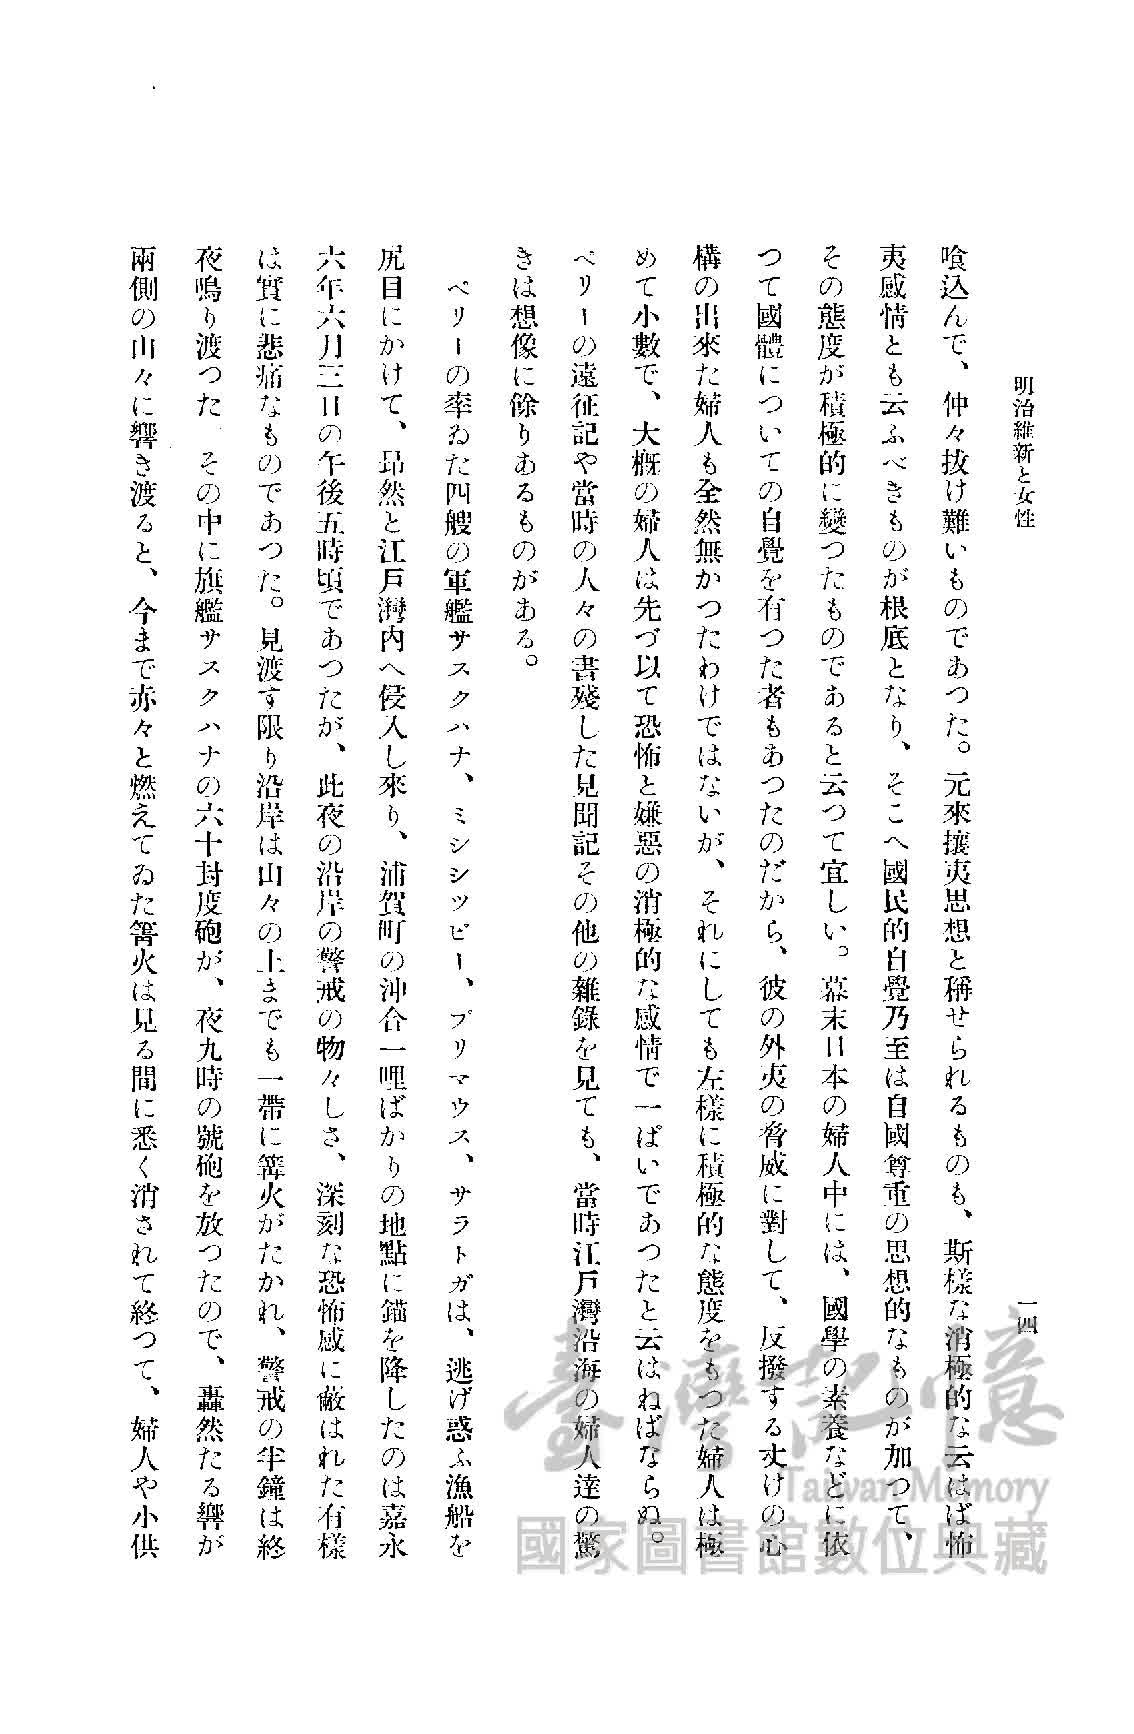 明治維新と女性
一四
喰込んで、仲々抜け難いものであつた。元來攘夷思想と稱せられるものも、斯樣な消極的な云はば怖
夷感情とも云ふべきものが根底となり、そこへ國民的自覺乃至は自國尊重の思想的なものが加つて、
その態度が積極的に變つたものであると云つて宜しい。幕末日本の婦人中には、國學の素養などに依
つて國體についての自覺を有つた者もあつたのだから、彼の外夷の脅威に對して、反撥する丈けの心
構の出來た婦人も全然無かつたわけではないが、それにしても左樣に積極的な態度をもつた婦人は極
めて小數で、大槪の婦人は先づ以て恐怖と嫌惡の消極的な感情で一ぱいであつたと云はねばならぬ。
ペリーの遠征記や當時の人々の書殘した見聞記その他の雜錄を見ても、當時江戶灣沿海の婦人達の驚
きは想像に餘りあるものがある。
ペリーの率ゐた四艘の軍艦サスクハナ、ミシシツピー、プリマウス、サラトガは、逃げ惑ふ漁船を
尻目にかけて、昻然と江戶灣內へ侵入し來り、浦賀町の沖合一哩ばかりの地點に錨を降したのは嘉永
六年六月三日の午後五時頃であつたが、此夜の沿岸の警戒の物々しさ、深刻な恐怖感に蔽はれた有樣
は實に悲痛なものであつた。見渡す限り沿岸は山々の上までも一帶に篝火がたかれ、警戒の半鐘は終
夜鳴り渡つた その中に旗艦サスクハナの六十封度砲が、夜九時の號砲を放つたので、轟然たる響が
兩側の山々に響き渡ると、今まで赤々と燃えてゐた篝火は見る間に悉く消されて終つて、婦人や小供
臺灣記憶
Taiwan Memory
國家圖書館數位典藏